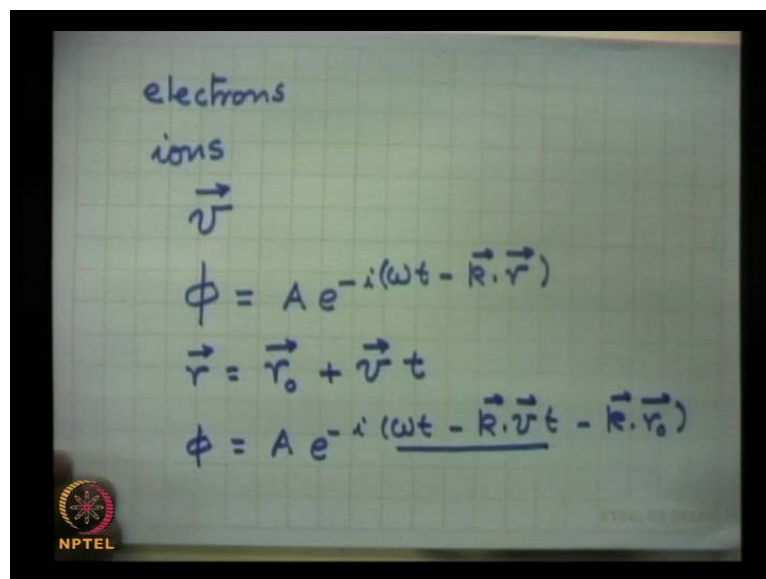 electrons
ions
\vec{v}
\phi = A e^{-i(\omega t - \vec{k}.\vec{r})}
\vec{r} = \vec{r}_0 + \vec{v} t
\phi = A e^{-i(\underline{\omega t - \vec{k}.\vec{v} t} - \vec{k}.\vec{r}_0)}
NPTEL